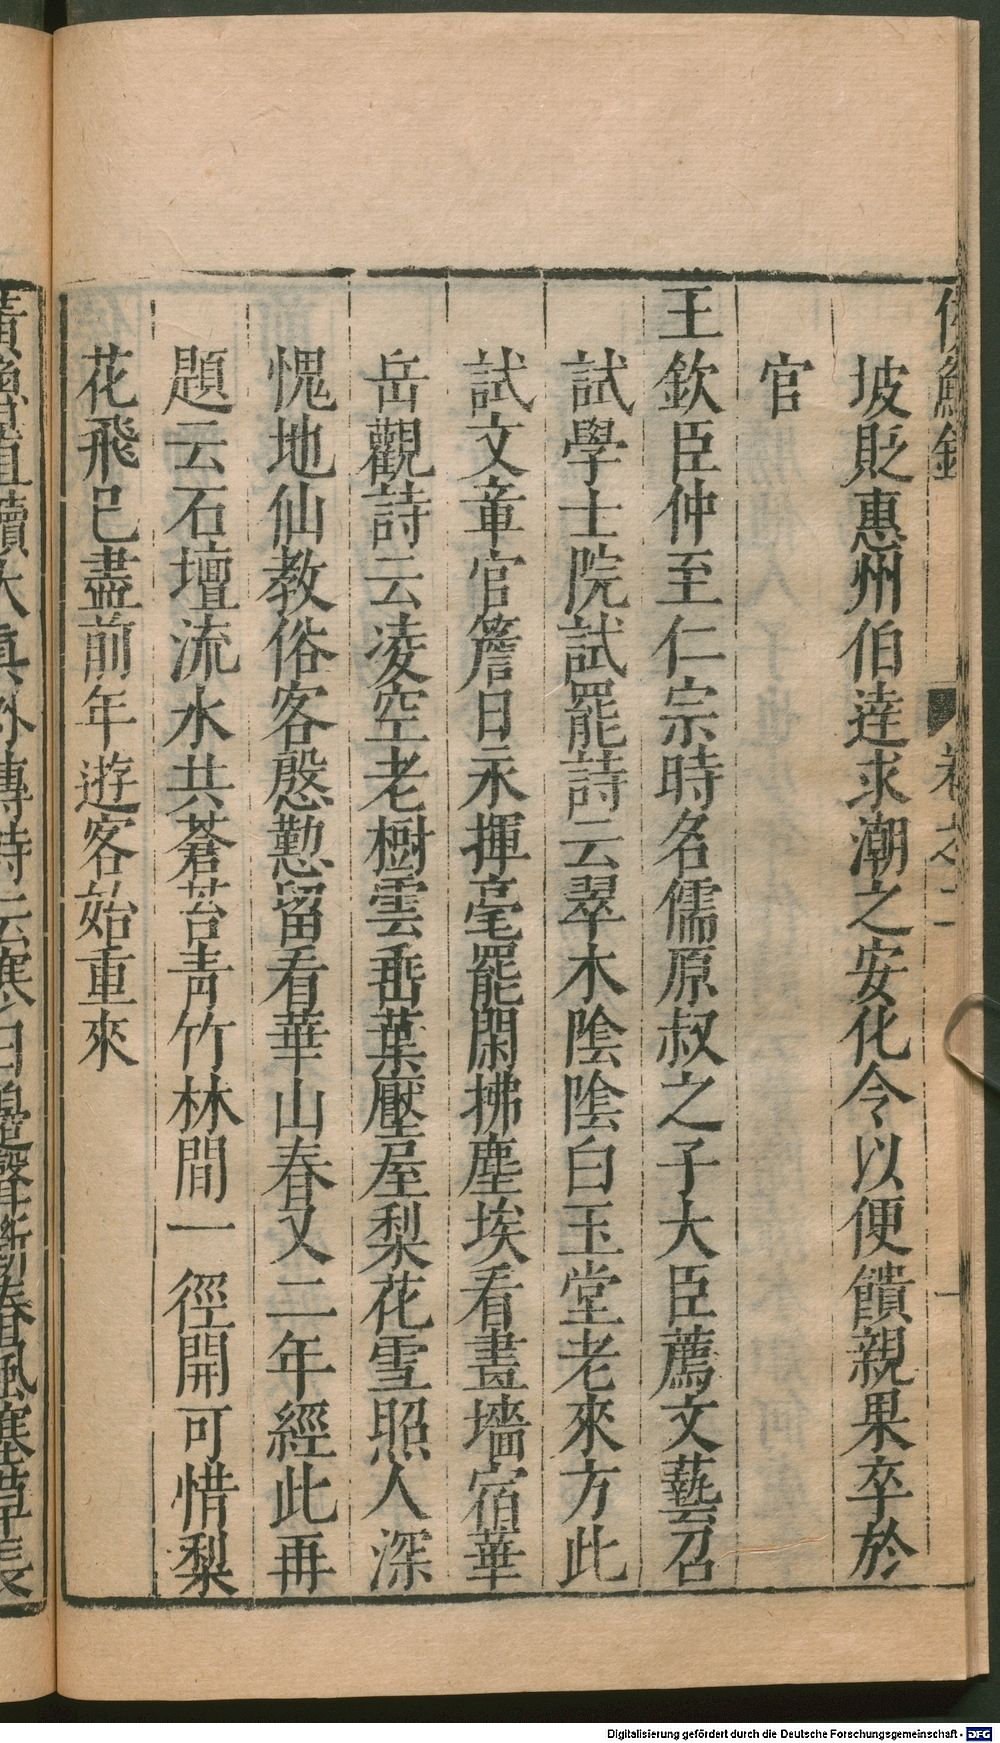 侯鯖錄 卷之二 一
坡貶惠州伯達求潮之安化令以便饋親果卒於
官
王欽臣仲至仁宗時名儒原叔之子大臣薦文藝召
試學士院試罷詩云翠木陰陰白玉堂老來方此
試文章官簷日永揮毫罷閑拂塵埃看畫墻宿華
岳觀詩云凌空老樹雲埀葉壓屋梨花雪照人深
愧地仙教俗客慇懃留看華山春又二年經此再
題云石壇流水共蒼苔青竹林間一徑開可惜梨
花飛已盡前年遊客始重來
Digitalisierung gefördert durch die Deutsche Forschungsgemeinschaft - DFG